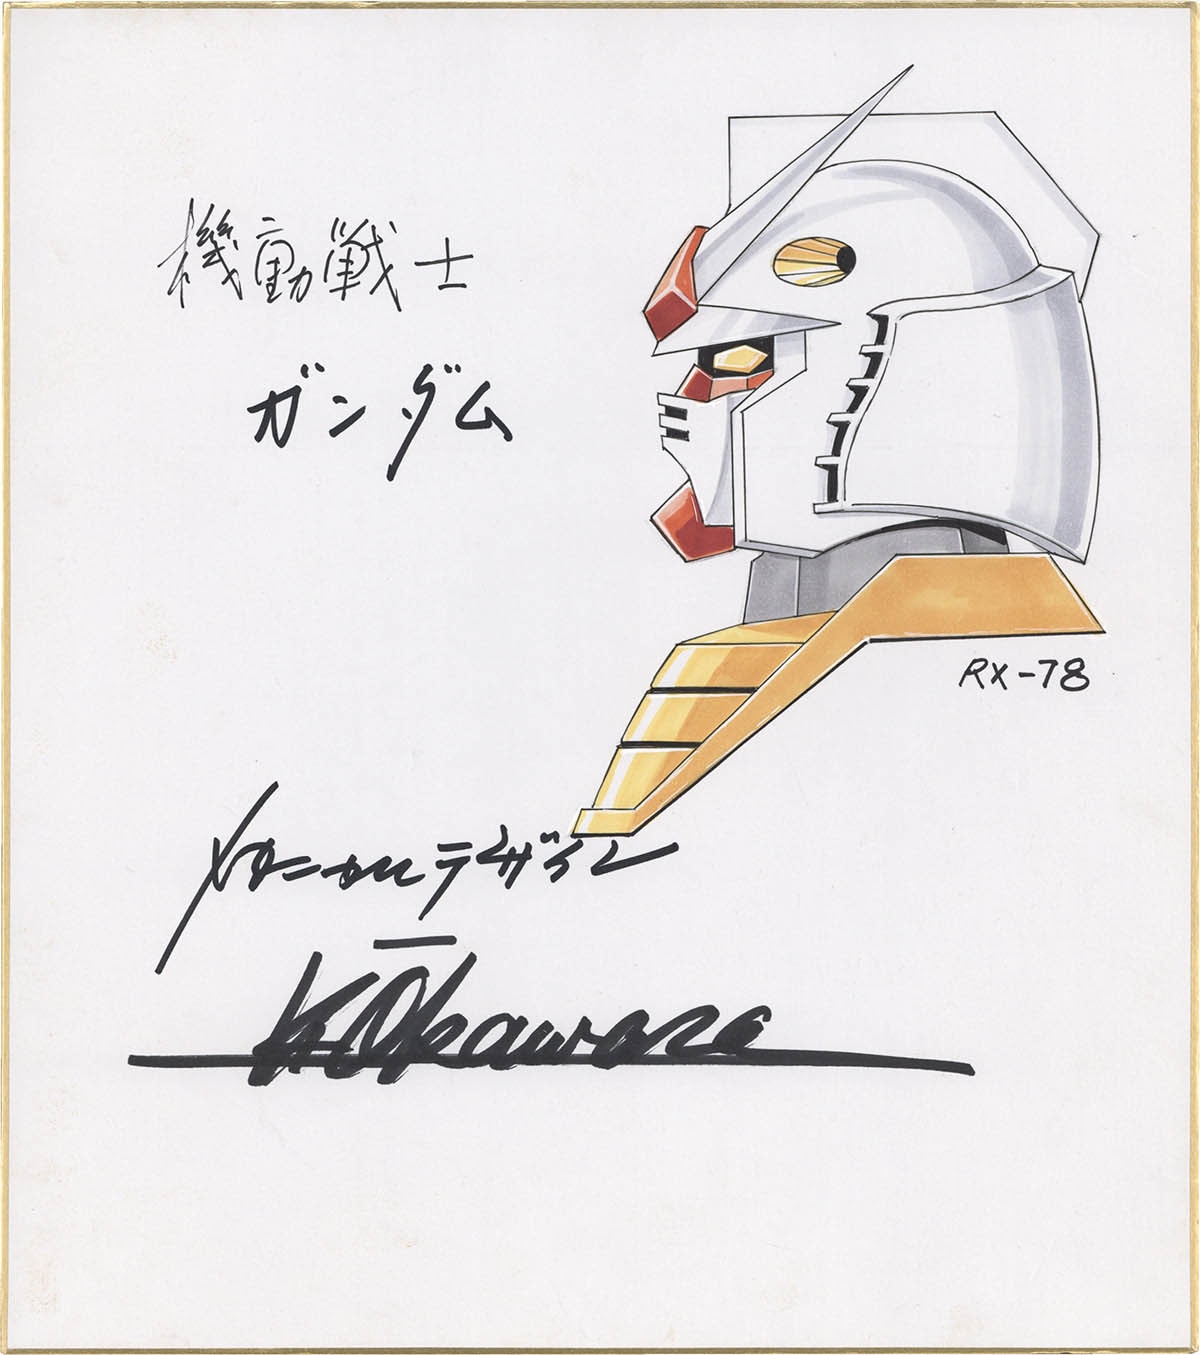 機動戦士
ガンダム
RX-78
メカニカルデザイン
K. Okawara